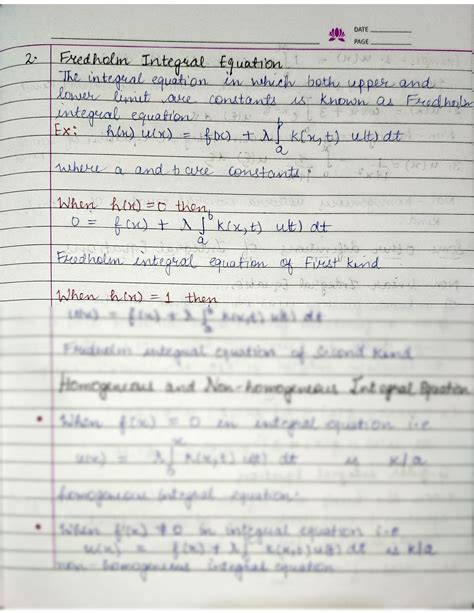 DATE
PAGE
2. Fredholm Integral Equation
The integral equation in which both upper and
lower limit are constants is known as Fredholm
integral equation
Ex: h(x) u(x) = f(x) + λ∫ₐᵇ K(x,t) u(t) dt
where a and b are constants.
When h(x) = 0 then,
0 = f(x) + λ∫ₐᵇ K(x,t) u(t) dt
Fredholm integral equation of First kind
When h(x) = 1 then
u(x) = f(x) + λ∫ₐᵇ K(x,t) u(t) dt
Fredholm integral equation of Second Kind
Homogeneous and Non-homogeneous Integral Equation
• When f(x) = 0 in integral equation i.e
u(x) = λ∫ K(x,t) u(t) dt is k/a
homogeneous integral equation.
• When f(x) ≠ 0 in integral equation i.e
u(x) = f(x) + λ∫ K(x,t) u(t) dt is k/a
non-homogeneous integral equation